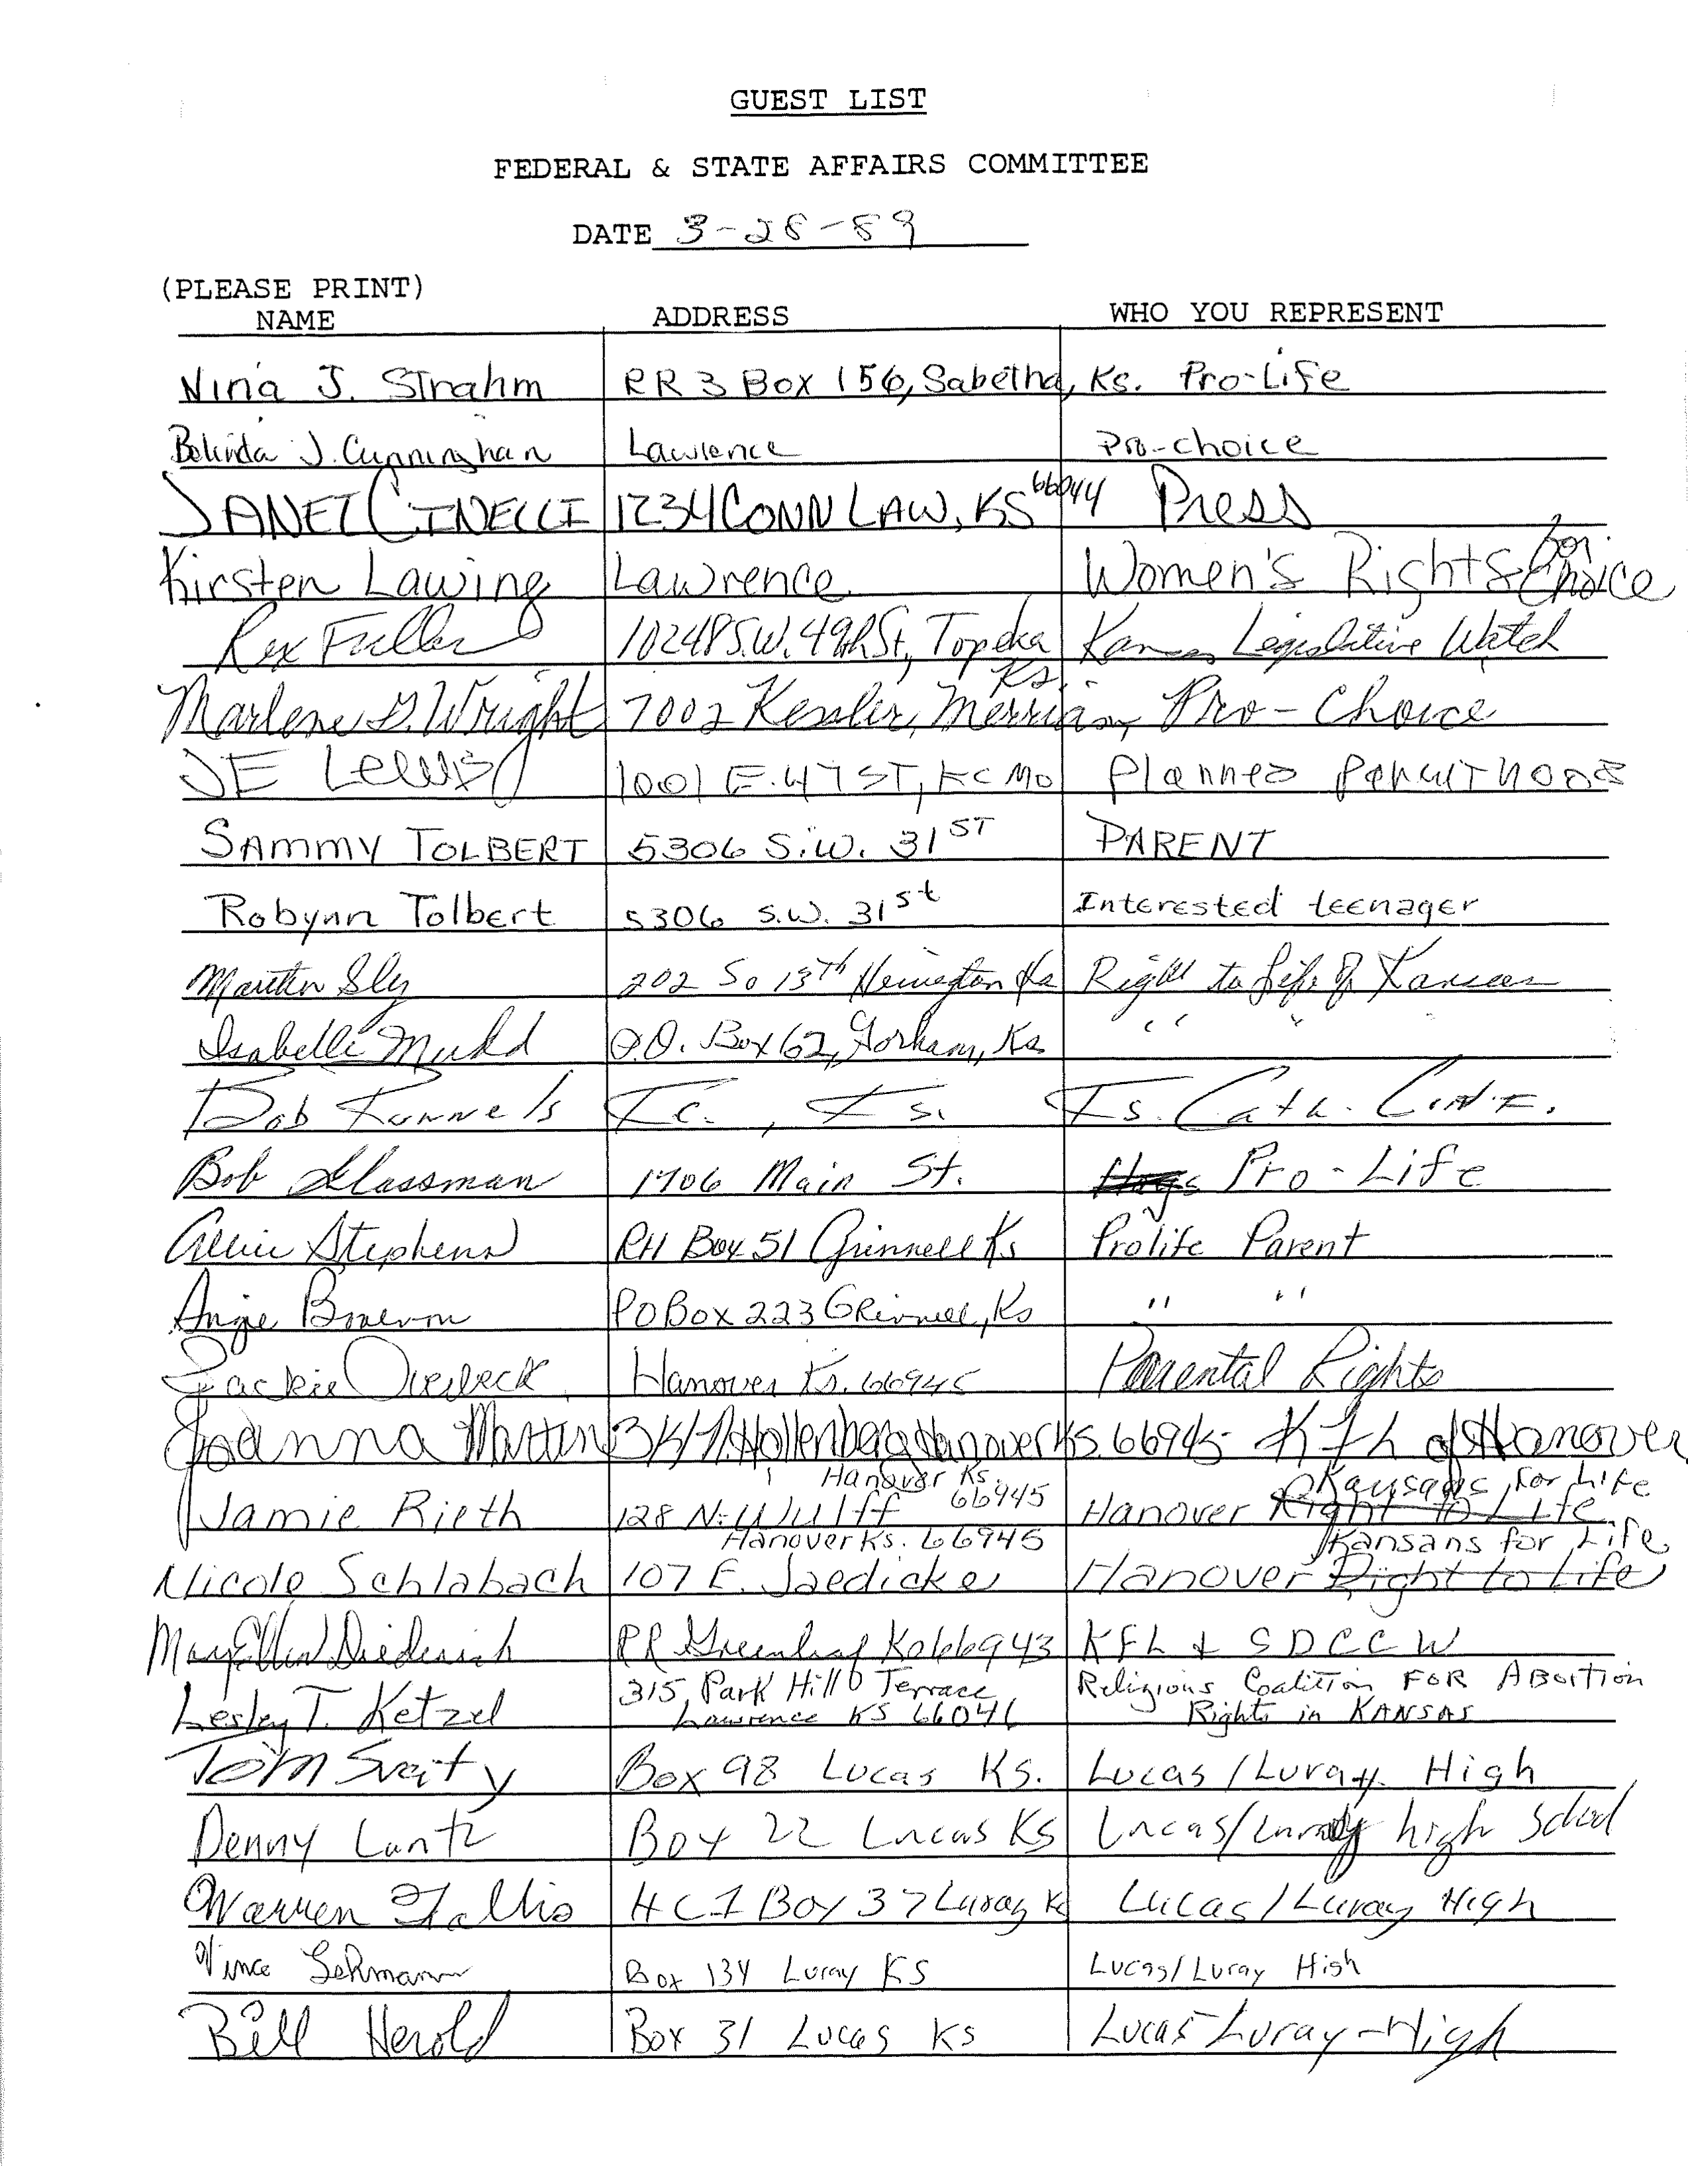 GUEST LIST
FEDERAL & STATE AFFAIRS COMMITTEE
DATE 3-28-89
(PLEASE PRINT)
NAME ADDRESS WHO YOU REPRESENT
Nina J. Strahm RR 3 Box 156, Sabetha, Ks. Pro-Life
Belinda J. Cunningham Lawrence Pro-choice
JANET CINELLI 1234 CONN LAW, KS 66044 Press
Kirsten Lawing Lawrence Women's Rights for Choice
Rex Fuller 1024 S.W. 49th St, Topeka Kansas Legislative Watch
Marlene D. Wright 7002 Kessler, Merriam, Ks. Pro-Choice
JE Lewis 1001 E. 47 ST, KC MO Planned Parenthood
SAMMY TOLBERT 5306 S.W. 31ST PARENT
Robynn Tolbert 5306 S.W. 31st Interested teenager
Sly 202 So 13th Herington Ks Right to Life of Kansas
Isabelle Mudd P.O. Box 62, Gorham, Ks " "
Bob Runnels KC., Ks. Ks. Cath. Conf.
Bob Glassman 1706 Main St. Pro-Life
Stephens RR1 Box 51 Grinnell Ks Prolife Parent
Angie PO Box 223 Grinnell, Ks " "
Jackie Hanover Ks. 66945 Parental Rights
Joanna Martin N. Hollenberg Hanover KS. 66945 KFL of Hanover
Hanover Ks. 66945 Kansans for Life
Jamie Rieth 128 N. Wulff Hanover Right to Life
Hanover Ks. 66945 Kansans for Life
Nicole Schlabach 107 E. Jaedicke Hanover Right to Life
Mary Ellen Diederich RR Greenleaf Ks 66943 KFL & SDCCW
315 Park Hill Terrace Religious Coalition FOR Abortion
Lesley T. Ketzel Lawrence KS 66046 Rights in KANSAS
Tom Box 98 Lucas Ks. Lucas/Luray High
Denny Lantz Box 22 Lucas KS Lucas/Luray high School
Warren HC1 Box 37 Luray Ks Lucas/Luray High
Vince Lehmann Box 134 Luray KS Lucas/Luray High
Bill Herold Box 31 Lucas KS Lucas-Luray-High